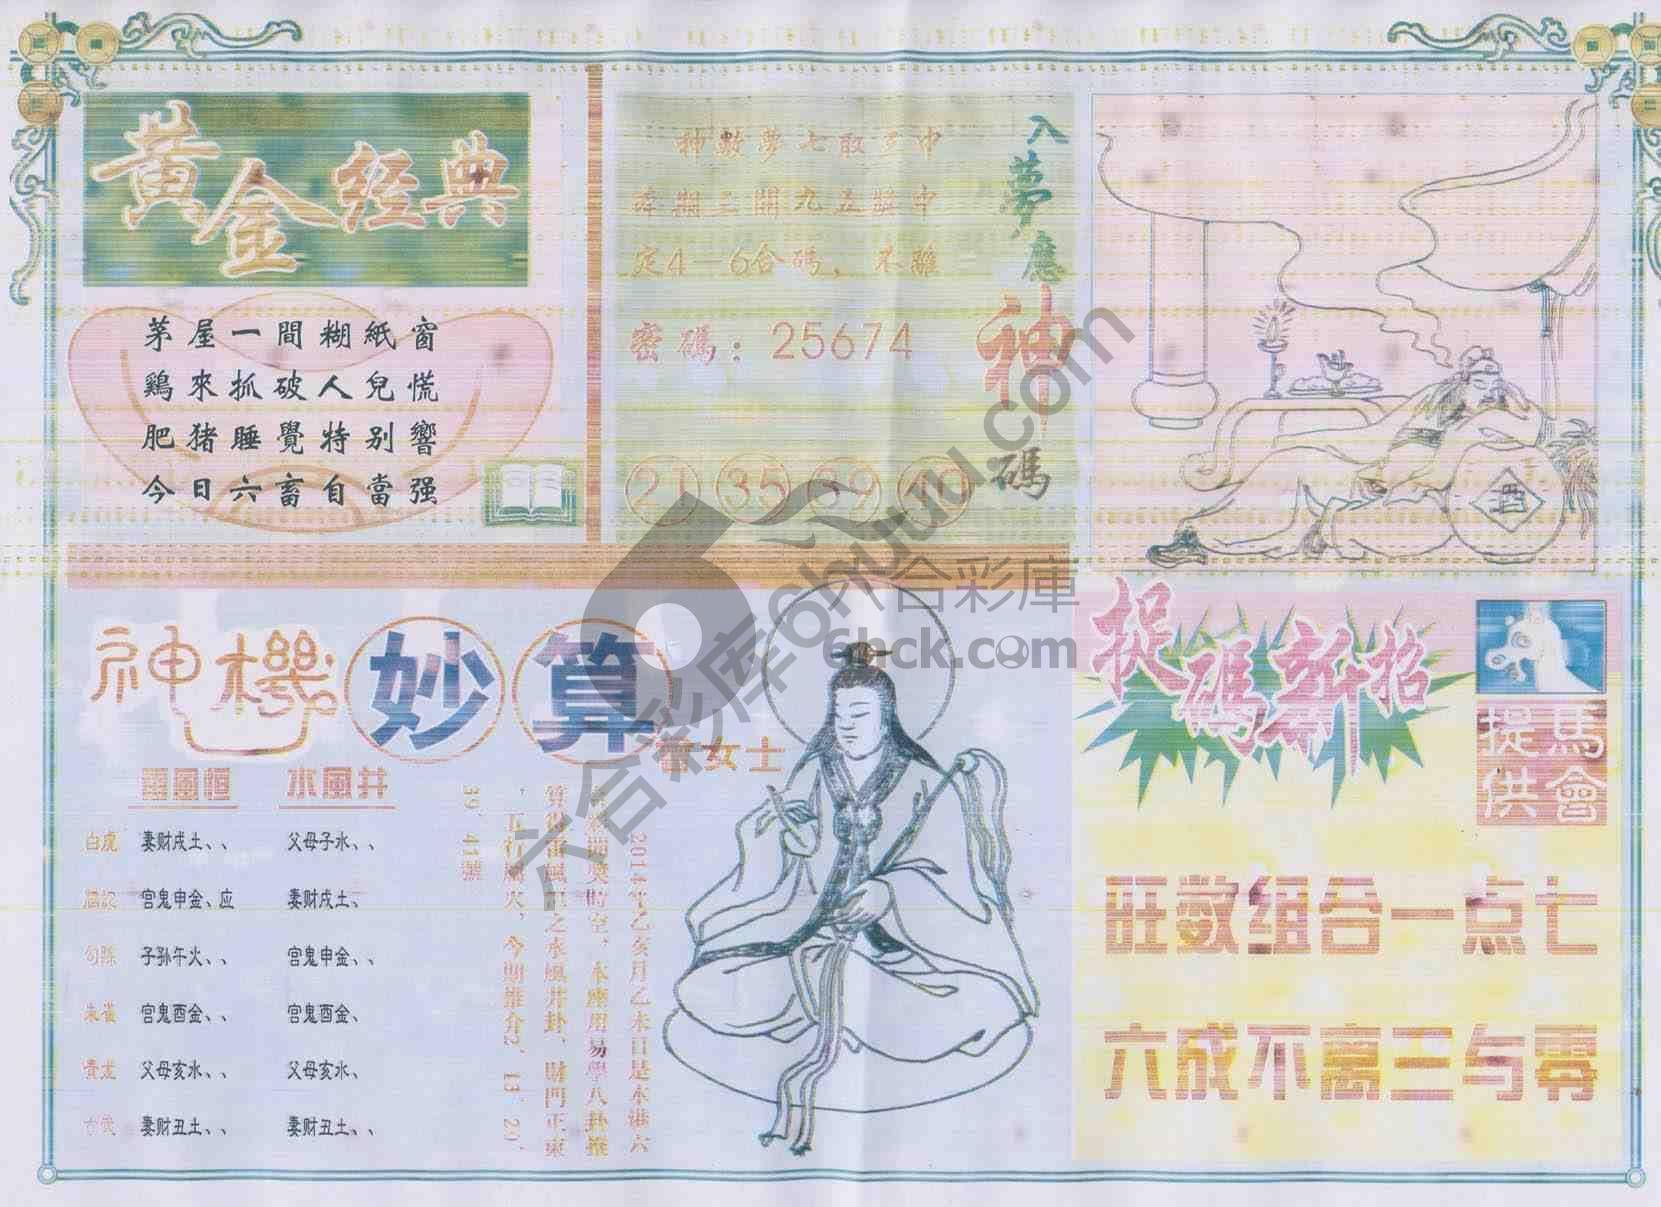 黄金经典
茅屋一間糊紙窗
鷄來抓破人兒慌
肥猪睡覺特别響
今日六畜自當强
神數夢七取三中
每期三關九五獎中
定4-6合碼，不離
密碼：25674
21 35 39
入夢應神碼
酒
神機妙算
女士
雷風恒
水風井
白虎 妻财戌土、、 父母子水、、
官鬼申金、应 妻财戌土、
勾陈 子孙午火、、 官鬼申金、、
朱雀 官鬼酉金、、 官鬼酉金、
青龙 父母亥水、、 父母亥水、
妻财丑土、、 妻财丑土、、
2014年乙亥月乙未日是本港六
時空，本座用易學八卦推
算得雷風恒之水風井卦，財門正東
，五行屬火，今期推介2、13、29、
39、41號
捉碼新招
馬會
提供
旺数组合一点七
六成不离三与零
六合彩庫
6hck.com
六合彩库6huuu.com